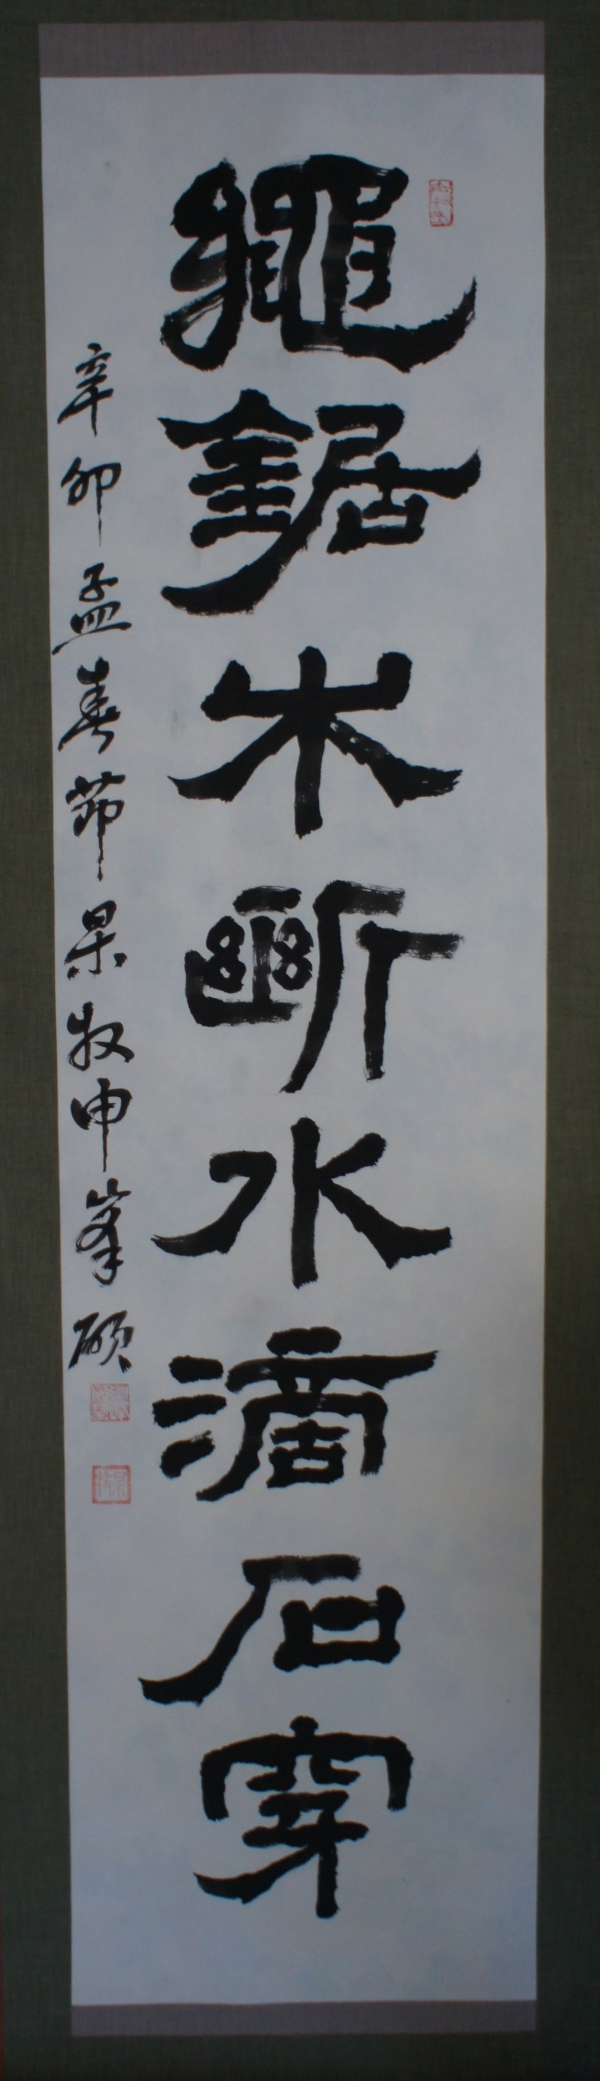 繩鋸木斷水滴石穿
辛卯孟春節杲牧申峯碩